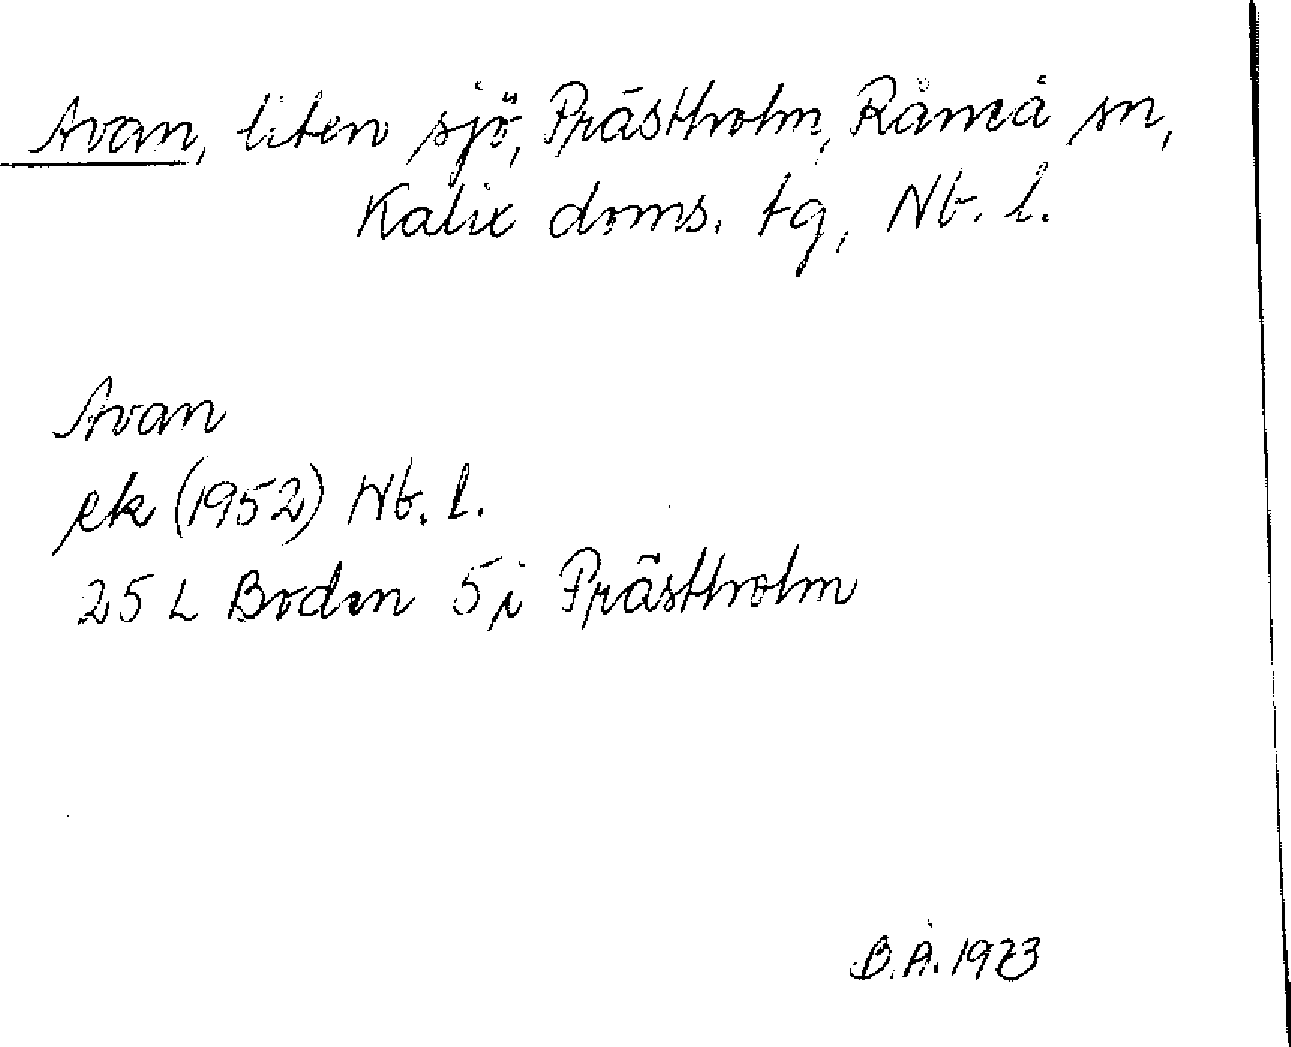 Avan, liten sjö, Prästholm, Råneå sn,
Kalix doms. tg, Nb. l.
Avan
ek (1952) Nb. l.
25 L Boden 5 i Prästholm
B.Å. 1973